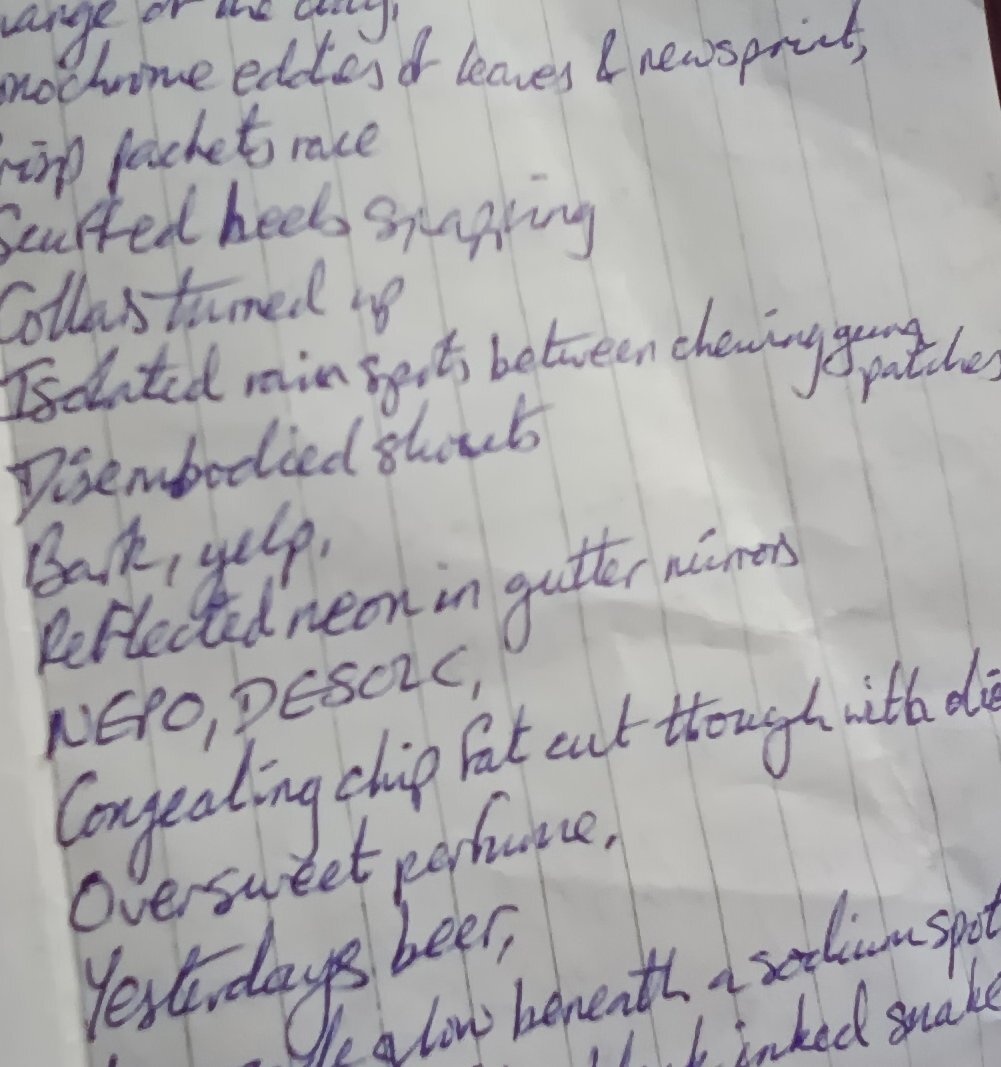 of the day,
eddies of leaves & newsprint,
packets race
Scuffed heels snapping
Collars turned up
Isolated rain spots between chewing gum patches
Disembodied shouts
Bark, yelp,
Reflected neon in gutter mirrors
NEPO, DESOLC,
Congealing chip fat cut though with
Oversweet perfume,
Yesterdays beer,
glow beneath a sodium spot
inked snake